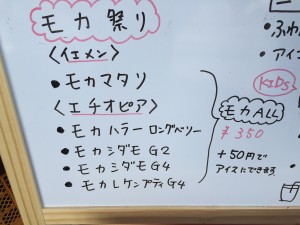 モカ祭り
〈イエメン〉
• モカマタリ
〈エチオピア〉
• モカハラー ロングベリー
• モカシダモ G2
• モカシダモ G4
• モカレケンプティ G4
モカALL
¥350
+50円で
アイスにできます
KIDS
• ふわ
• アイ